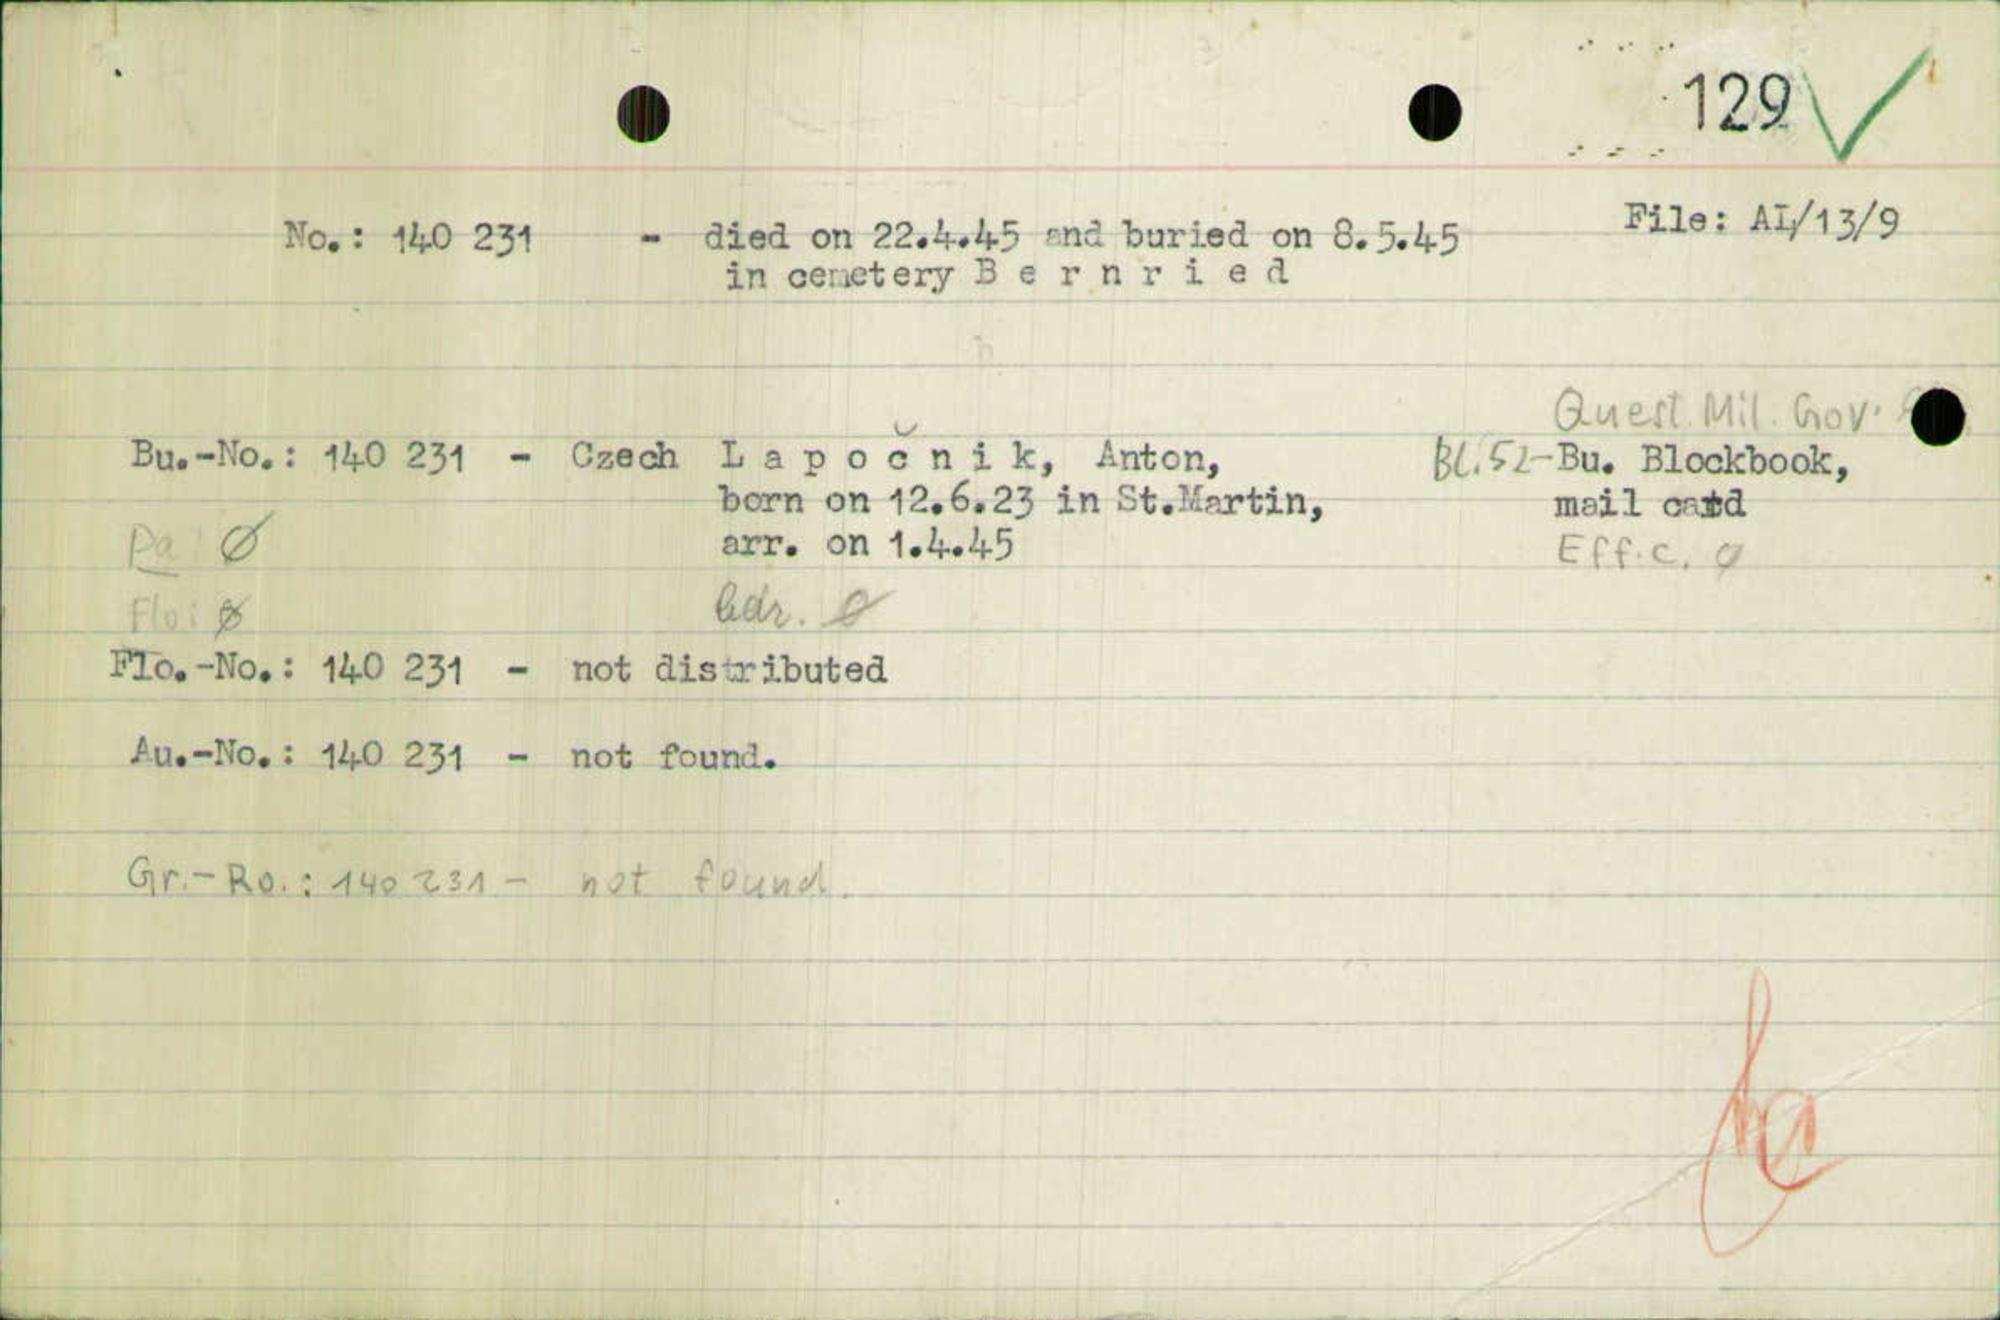 129
No.: 140 231 - died on 22.4.45 and buried on 8.5.45 File: AI/13/9
in cemetery B e r n r i e d
Quest. Mil. Gov.
Bu.-No.: 140 231 - Czech L a p o č n i k, Anton, Bl. 52 - Bu. Blockbook,
born on 12.6.23 in St.Martin, mail card
Pa: Ø arr. on 1.4.45 Eff.c. Ø
Flo: Ø Ø
Flo.-No.: 140 231 - not distributed
Au.-No.: 140 231 - not found.
Gr.-Ro.: 140 231 - not found.